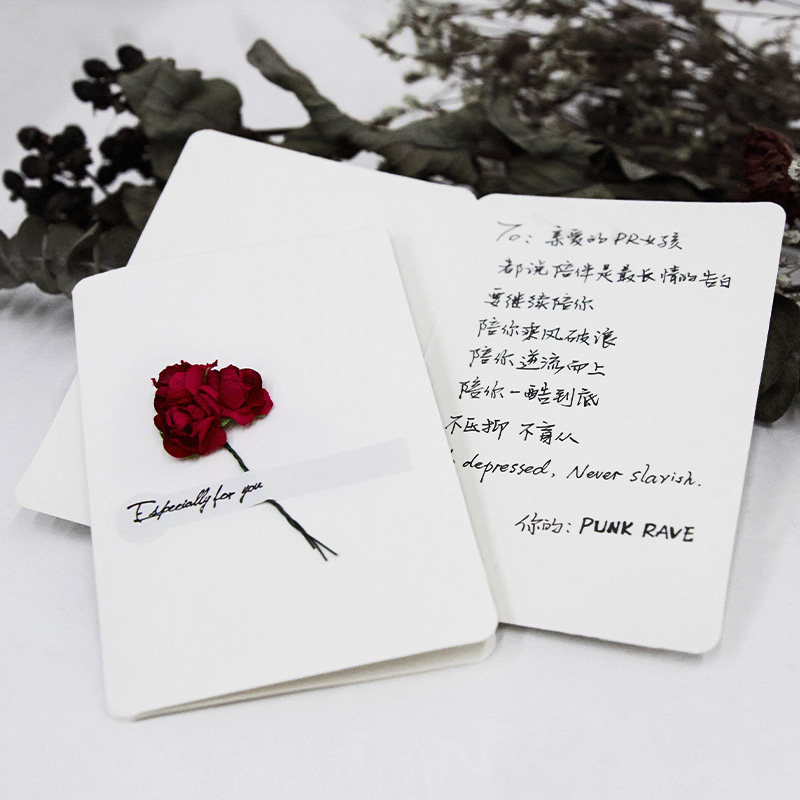 Especially for you
To: 亲爱的PR女孩
都说陪伴是最长情的告白
要继续陪你
陪你乘风破浪
陪你逆流而上
陪你一酷到底
不压抑 不盲从
depressed, Never slavish.
你的: PUNK RAVE